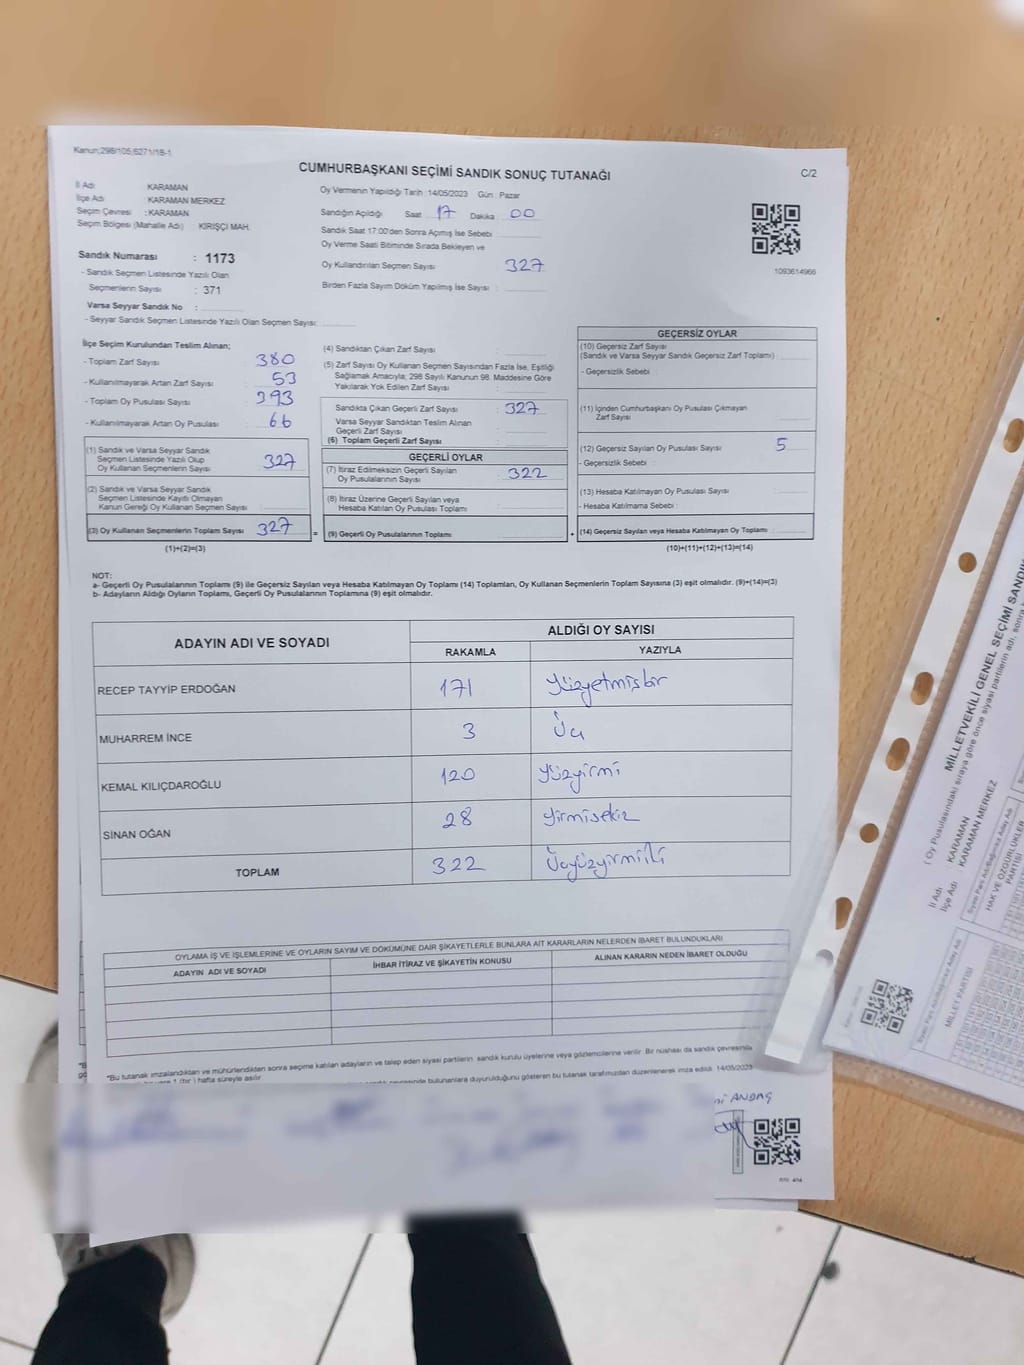 Kanun;298/105;6271/18-1
CUMHURBAŞKANI SEÇİMİ SANDIK SONUÇ TUTANAĞI
C/2
İl Adı KARAMAN
İlçe Adı : KARAMAN MERKEZ
Seçim Çevresi : KARAMAN
Seçim Bölgesi (Mahalle Adı) KİRİŞÇİ MAH.
Oy Vermenin Yapıldığı Tarih :14/05/2023 Gün : Pazar
Sandığın Açıldığı Saat 17 Dakika 00
Sandık Saat 17:00'den Sonra Açımış İse Sebebi
Oy Verme Saati Bitiminde Sırada Bekleyen ve
Oy Kullandırılan Seçmen Sayısı 327
Birden Fazla Sayım Döküm Yapılmış İse Sayısı :
1093614966
Sandık Numarası : 1173
- Sandık Seçmen Listesinde Yazılı Olan
Seçmenlerin Sayısı : 371
Varsa Seyyar Sandık No :
- Seyyar Sandık Seçmen Listesinde Yazılı Olan Seçmen Sayısı:
İlçe Seçim Kurulundan Teslim Alınan;
- Toplam Zarf Sayısı : 380
- Kullanılmayarak Artan Zarf Sayısı : 53
- Toplam Oy Pusulası Sayısı : 393
- Kullanılmayarak Artan Oy Pusulası : 66
(1) Sandık ve Varsa Seyyar Sandık
Seçmen Listesinde Yazılı Olup
Oy Kullanan Seçmenlerin Sayısı : 327
(2) Sandık ve Varsa Seyyar Sandık
Seçmen Listesinde Kayıtlı Olmayan
Kanun Gereği Oy Kullanan Seçmen Sayısı :
(3) Oy Kullanan Seçmenlerin Toplam Sayısı 327
(1)+(2)=(3)
(4) Sandıktan Çıkan Zarf Sayısı :
(5) Zarf Sayısı Oy Kullanan Seçmen Sayısından Fazla İse, Eşitliği
Sağlamak Amacıyla; 298 Sayılı Kanunun 98. Maddesine Göre
Yakılarak Yok Edilen Zarf Sayısı :
Sandıkta Çıkan Geçerli Zarf Sayısı : 327
Varsa Seyyar Sandıktan Teslim Alınan
Geçerli Zarf Sayısı :
(6) Toplam Geçerli Zarf Sayısı :
GEÇERLİ OYLAR
(7) İtiraz Edilmeksizin Geçerli Sayılan
Oy Pusulalarının Sayısı : 322
(8) İtiraz Üzerine Geçerli Sayılan veya
Hesaba Katılan Oy Pusulası Toplamı :
= (9) Geçerli Oy Pusulalarının Toplamı :
GEÇERSİZ OYLAR
(10) Geçersiz Zarf Sayısı
(Sandık ve Varsa Seyyar Sandık Geçersiz Zarf Toplamı) :
- Geçersizlik Sebebi :
(11) İçinden Cumhurbaşkanı Oy Pusulası Çıkmayan
Zarf Sayısı :
(12) Geçersiz Sayılan Oy Pusulası Sayısı : 5
- Geçersizlik Sebebi :
(13) Hesaba Katılmayan Oy Pusulası Sayısı :
- Hesaba Katılmama Sebebi :
+ (14) Geçersiz Sayılan veya Hesaba Katılmayan Oy Toplamı :
(10)+(11)+(12)+(13)=(14)
NOT:
a- Geçerli Oy Pusulalarının Toplamı (9) ile Geçersiz Sayılan veya Hesaba Katılmayan Oy Toplamı (14) Toplamları, Oy Kullanan Seçmenlerin Toplam Sayısına (3) eşit olmalıdır. (9)+(14)=(3)
b- Adayların Aldığı Oyların Toplamı, Geçerli Oy Pusulalarının Toplamına (9) eşit olmalıdır.
ADAYIN ADI VE SOYADI
ALDIĞI OY SAYISI
RAKAMLA YAZIYLA
RECEP TAYYİP ERDOĞAN 171 Yüzyetmişbir
MUHARREM İNCE 3 Üç
KEMAL KILIÇDAROĞLU 120 Yüzyirmi
SİNAN OĞAN 28 Yirmisekiz
TOPLAM 322 Üçyüzyirmiiki
OYLAMA İŞ VE İŞLEMLERİNE VE OYLARIN SAYIM VE DÖKÜMÜNE DAİR ŞİKAYETLERLE BUNLARA AİT KARARLARIN NELERDEN İBARET BULUNDUKLARI
ADAYIN ADI VE SOYADI İHBAR İTİRAZ VE ŞİKAYETİN KONUSU ALINAN KARARIN NEDEN İBARET OLDUĞU
*Bu tutanak imzalandıktan ve mühürlendikten sonra seçime katılan adayların ve talep eden siyasi partilerin sandık kurulu üyelerine veya gözlemcilerine verilir. Bir nüshası da sandık çevresinde
(bir) hafta süreyle asılır.
bulunanlara duyurulduğunu gösteren bu tutanak tarafımızdan düzenlenerek imza edildi. 14/05/2023
ANDAÇ
MİLLETVEKİLİ GENEL SEÇİMİ SANDIK
( Oy Pusulasındaki sıraya göre önce siyasi partilerin adı, sonra
İl Adı : KARAMAN
İlçe Adı : KARAMAN MERKEZ
HAK VE ÖZGÜRLÜKLER
PARTİSİ
MİLLET PARTİSİ